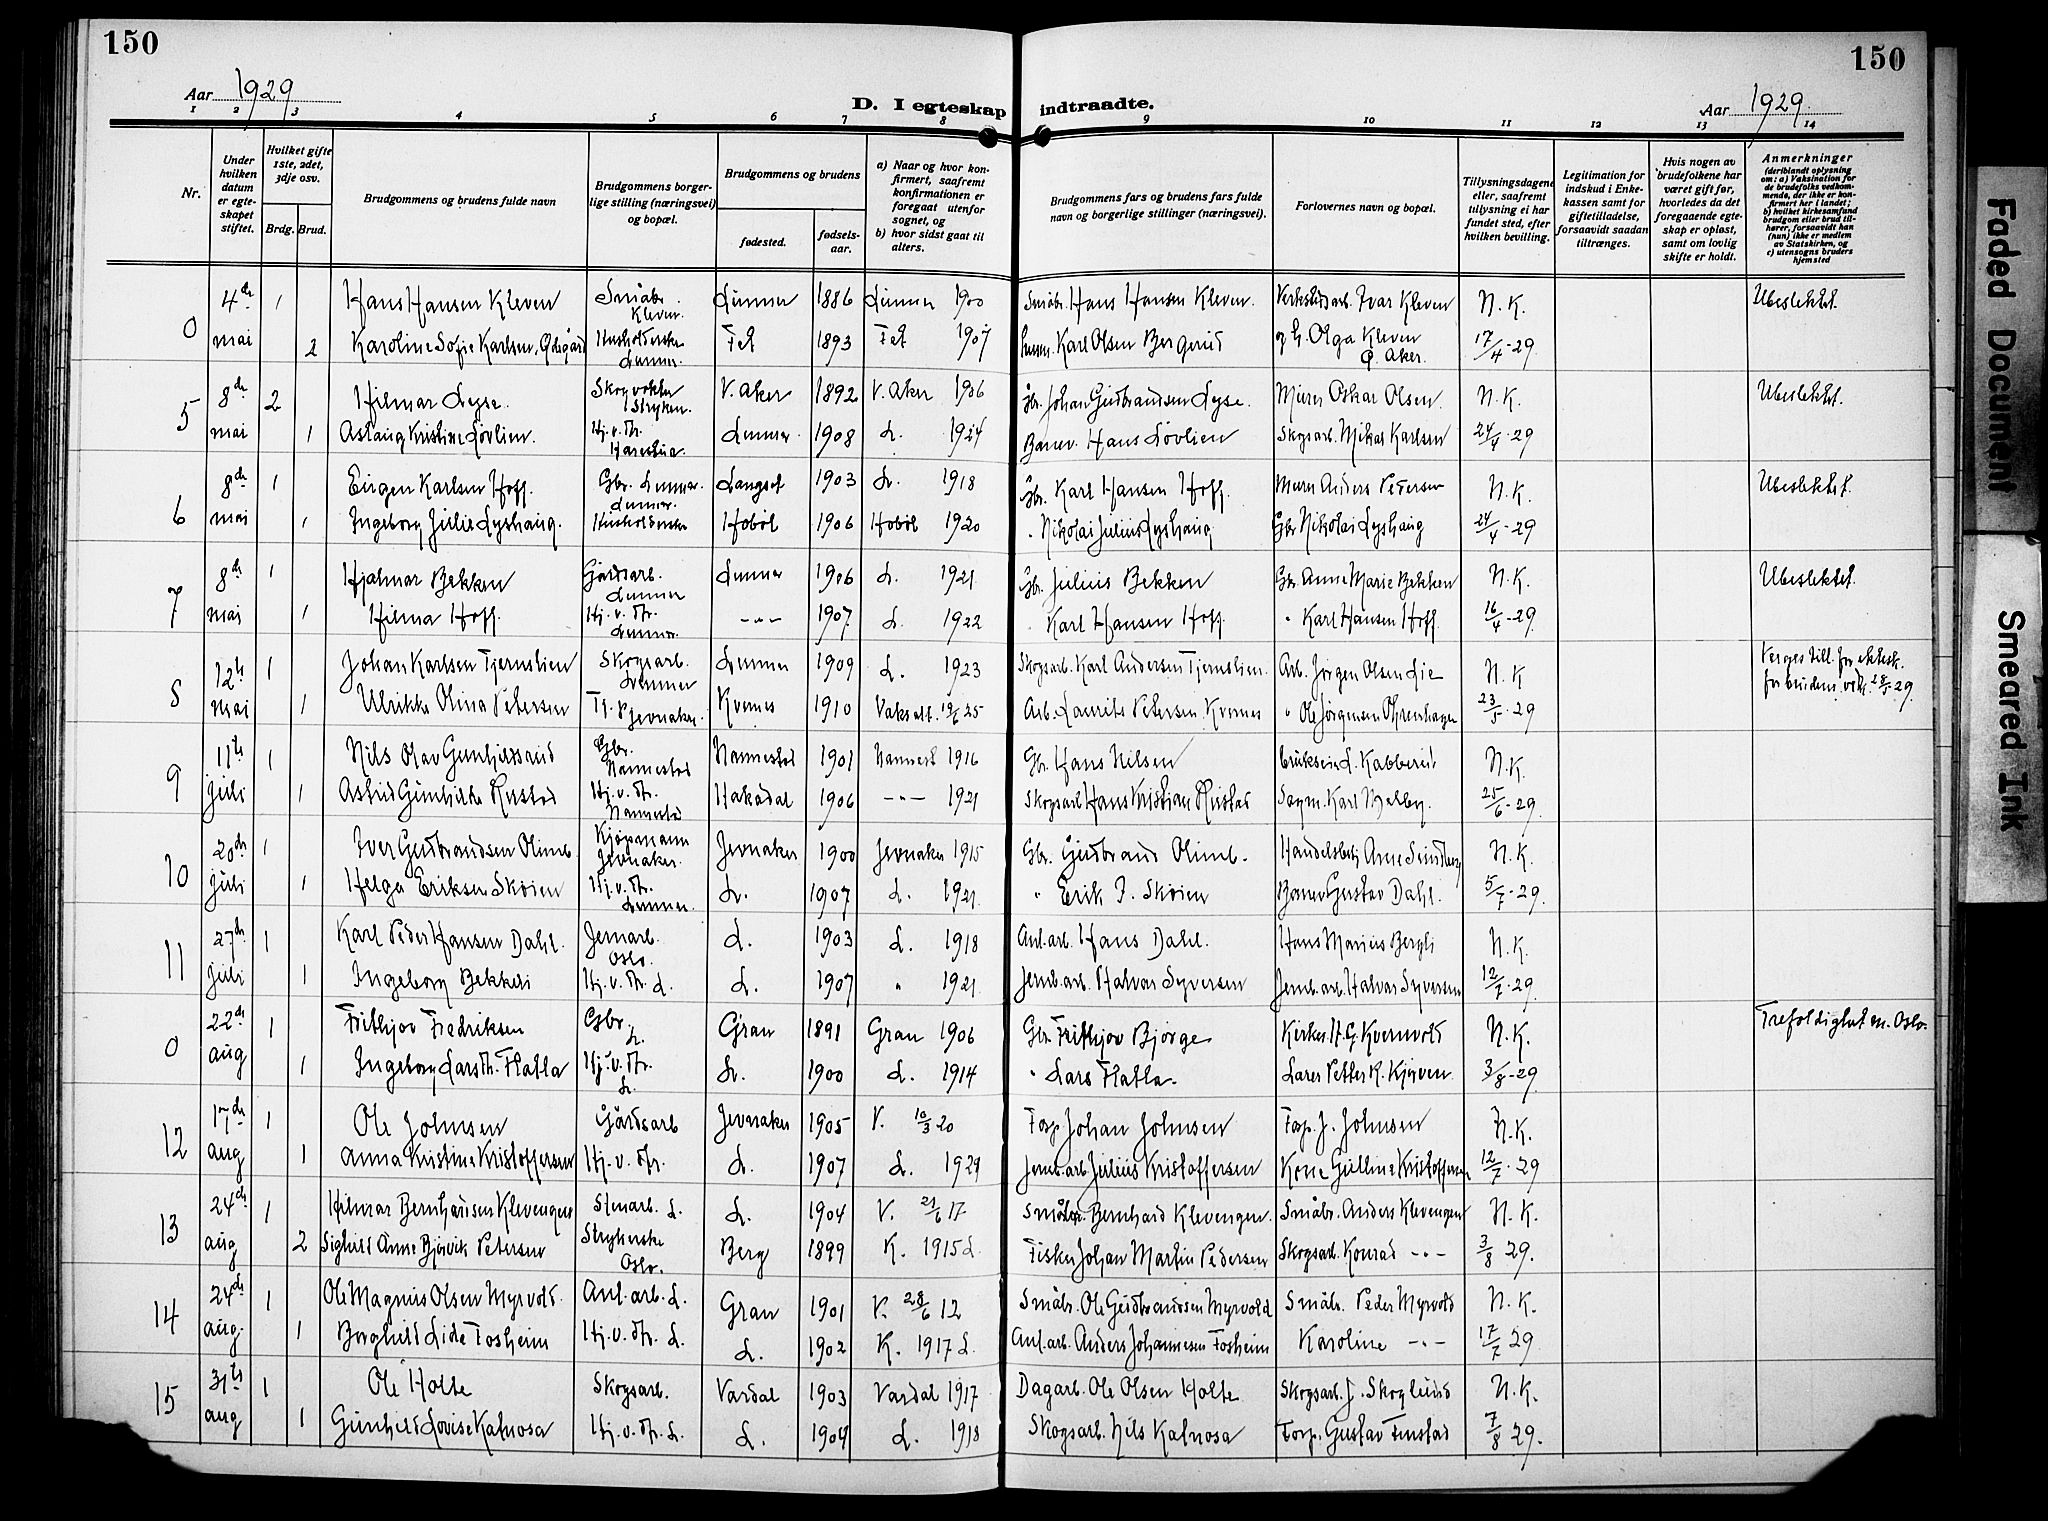 150
150
Aar 1929
D. I egteskap indtraadte.
Aar 1929.
1 2 3 4 5 6 7 8 9 10 11 12 13 14
Nr.
Under hvilken datum er egteskapet stiftet.
Hvilket gifte 1ste, 2det, 3dje osv.
Brdg. Brud.
Brudgommens og brudens fulde navn
Brudgommens borgerlige stilling (næringsvei) og bopæl.
Brudgommens og brudens
fødested.
fødselsaar.
a) Naar og hvor konfirmert, saafremt konfirmationen er foregaat utenfor sognet, og
b) hvor sidst gaat til alters.
Brudgommens fars og brudens fars fulde navn og borgerlige stillinger (næringsvei).
Forlovernes navn og bopæl.
Tillysningsdagene eller, saafremt tillysning ei har fundet sted, efter hvilken bevilling.
Legitimation for indskud i Enkekassen samt for giftetilladelse, forsaavidt saadan tiltrænges.
Hvis nogen av brudefolkene har været gift før, hvorledes da det foregaaende egteskap er opløst, samt om lovlig skifte er holdt.
Anmerkninger (deriblandt oplysning om: a) Vaksination for de brudefolks vedkommende, der ikke er konfirmert her i landet; b) hvilket kirkesamfund brudgom eller brud tilhører, forsaavidt han (hun) ikke er medlem av Statskirken, og c) utensogns bruders hjemsted
0 4de mai 1 Hans Hansen Kleven Småbr. Kleven. Lunner 1886 Lunner 1900 Småbr. Hans Hansen Kleven. Verkstedarb. Ivar Kleven N.K. Ubeslektet.
2 Karoline Sofie Karlsen, Ødegård Husholderske Lunner Fet 1893 Fet 1907 Karl Olsen Bergerud og h. Olga Kleven Ø. Aker. 17/4-29
5 8de mai 2 Hilmar Lyse Skogvokter Stryken. V. Aker 1892 V. Aker 1906 Gbr. Johan Gudbrandsen Lyse. Murer Oskar Olsen. N.K. Ubeslektet.
1 Aslaug Kristine Løvlien. Hj.v.Mr. Harestua Lunner 1908 L. 1924 Banev. Hans Løvlien Skogsarb. Mikal Karlsen 24/4-29
6 8de mai 1 Eugen Karlsen Hoff. Gbr. Lunner. Langset 1903 L. 1918 Gbr. Karl Hansen Hoff. Murer Anders Pedersen N.K. Ubeslektet.
1 Ingeborg Julie Lyshaug. Lunner. Husholderske Hobøl 1906 Hobøl 1920 " Nikolai Julius Lyshaug Gbr. Nikolai Lyshaug 24/4-29
7 8de mai 1 Hjalmar Bekken Gårdsarb. Lunner Lunner 1906 L. 1921. Gbr. Julius Bekken Gbr. Anne Marie Bekken N.K. Ubeslektet.
1 Hilma Hoff. Hj.v.Mr. Lunner. -"- 1907 L. 1922 " Karl Hansen Hoff. " Karl Hansen Hoff 16/4-29.
8 12te mai 1 Johan Karlsen Tjernslien Skogsarb. Lunner Lunner 1909 L. 1923 Skogsarb. Karl Andersen Tjernslien. Arb. Jørgen Olsen Lie N.K
1 Ulrikke Olina Petersen Tj. Jevnaker. Kvernes 1910 Vaks att. 19/6 25 Arb. Laurits Petersen Kvernes 23/5-29
9 11te juli 1 Nils Olav Gunhildsrud Gbr. Nannestad Nannestad 1901 Nannest 1916 Gbr. Hans Nilsen N.K.
1 Astrid Gunhilde Rustad Hj.v.Mr. Nannestad Hakadal 1906 -"- 1921 Skogsarb. Hans Kristian Rustad Sagm. Karl Melby. 25/6-29.
10 20de juli 1 Iver Gudbrandsen Olimb Kjøpmann Jevnaker. Jevnaker 1900 Jevnaker 1915 Gbr. Gudbrand Olimb. N.K.
1 Helga Eriksen Skøien Hj.v.Mr. Lunner. L. 1907 L. 1921. " Erik J. Skøien Gustav Dahl. 5/7-29.
11 27de juli 1 Karl Peder Hansen Dahl. Jernarb. Oslo. L. 1903 L. 1918 Anl.arb. Hans Dahl. Hans Marius Bergli N.K.
1 Ingeborg Bekken Hj.v.Mr. L. L. 1907 " 1921. Jernb.arb. Halvar Syversen Jernb.arb. Halvar Syversen 12/7-29.
0 22de aug 1 Frithjov Fredriksen Gbr. L. Gran 1891 Gran 1906 Gbr. Frithjov Bjørge Kirkes. H.G. Kvernvold N.K. Trefoldighet m. Oslo.
1 Ingeborg Larsth. Flatla Hj.v.Mr. L. L. 1900 L. 1914 " Lars Flatla. Lærer Petter K. Kjørven 3/8-29
12 17de aug 1 Ole Johnsen Gårdsarb Jevnaker 1905 V. 10/3 20 Forp. Johan Johnsen Forp. J. Johnsen N.K.
1 Anna Kristine Kristoffersen Hj.v.Mr. L. 1907 L. 1929 Jernb.arb. Julius Kristoffersen Kone Gulline Kristoffersen 12/7-29
13 24de aug 1 Hilmar Bernhardsen Klevengen Stenarb. L. L. 1904 V. 21/6 17 Småbr. Bernhard Klevengen. Småbr. Anders Klevengen N.K.
2 Sighild Anne Bjørvik Petersen Strykerske Oslo. Berg 1899 K. 1915 L. Fisker Johan Martin Pedersen Skogsarb. Konrad -"- 3/8 29.
14 24de aug. 1 Ole Magnus Olsen Myrvold. Anl.arb. L. Gran 1901 V. 28/6 12 Småbr. Ole Gudbrandsen Myrvold Småbr. Peder Myrvold N.K.
1 Borghild Lide Fosheim Hj.v.Mr. L. L. 1902 K. 1917 L. Anl.arb. Anders Johannesen Fosheim Karoline -"- 17/7 29
15 31te aug 1 Ole Holte Skogsarb. Vardal 1903 Vardal 1917 Dagarb. Ole Olsen Holte Skogsarb. J. Skoglund N.K.
1 Gunhild Lovise Kalnosa Hj.v.Mr. L. L. 1904 L. 1918 Skogsarb. Nils Kalnosa Forp. Gustav Finstad 7/8 29.
Faded Document
Smeared Ink